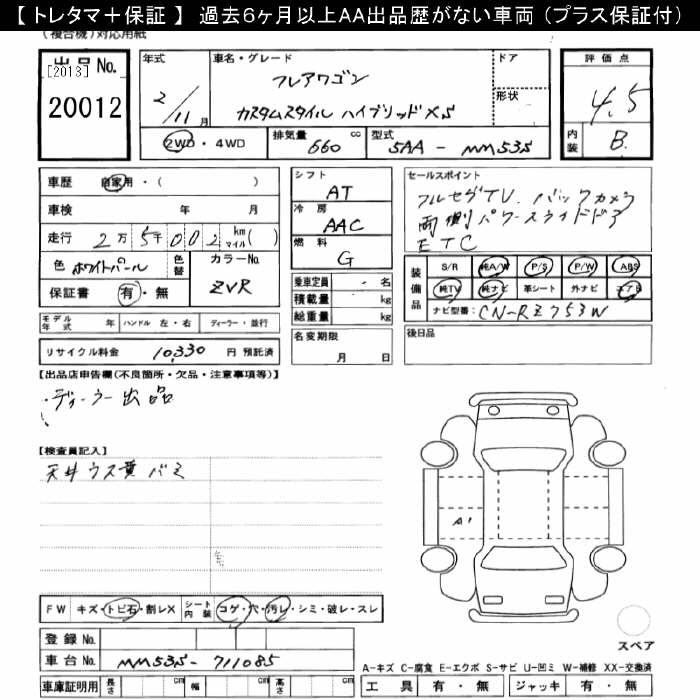 【トレタマ＋保証】 過去６ヶ月以上AA出品歴がない車両（プラス保証付）
(複合機)対応用紙
出品No.
[2013]
20012
年式
2/11月
車名・グレード
フレアワゴン
カスタムスタイル ハイブリッドXS
ドア
形状
評価点
4.5
内装
B.
2WD・4WD
排気量 660 cc
型式 5AA - MM53S
車歴 自家用・( )
車検 年 月
走行 2万5千002 km マイル( )
色 ホワイトパール
色替
カラーNo. ZVR
保証書 有・無
シフト
AT
冷房
AAC
燃料
G
セールスポイント
フルセグTV. バックカメラ
両側パワースライドドア
ETC
乗車定員 - 名
積載量 kg
総重量 kg
装備品
S/R 純A/W P/S P/W ABS
純TV 純ナビ 革シート 外ナビ エアB
ナビ型番: CN-RZ753W
モデル年式 年 ハンドル 左・右 ディーラー・並行
名変期限
月 日
後日品
リサイクル料金 10,330 円 預託済
【出品店申告欄(不良箇所・欠品・注意事項等)】
・ディーラー出品
【検査員記入】
天井ウス黄バミ
A1
FW キズ・トビ石・割レX
シート内装 コゲ・穴・汚レ・シミ・破レ・スレ
登録No.
車台No. MM53S-711085
車庫証明用 長さ cm 幅 cm 高さ cm
スペア
A-キズ C-腐食 E-エクボ S-サビ U-凹ミ W-補修 XX-交換済
工具 有・無 ジャッキ 有・無